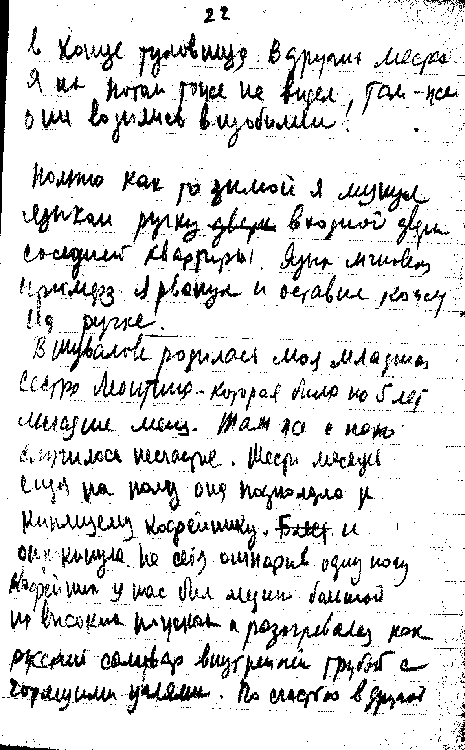 22
в конце туловища. В других местах
я их потом тоже не видел, там-же
они водились в изобилии!
Помню как то зимой я лизнул
языком ручку двери входной двери
соседней квартиры. Язык мгновенно
примерз я рванул и оставил кожу
на ручке.
В Шувалове родилась моя младшая
сестра которая была на 5 лет
младше меня. Там же с нею
случилось несчастье. Шести месяцев
сидя на полу она подползла к
кипящему кофейнику. и
опрокинула на себя ошпарив одну ногу
кофейник у нас был медный большой
на высоких ножках и разогревался как
русский самовар внутренней трубой с
горящими углями. По счастью в другой